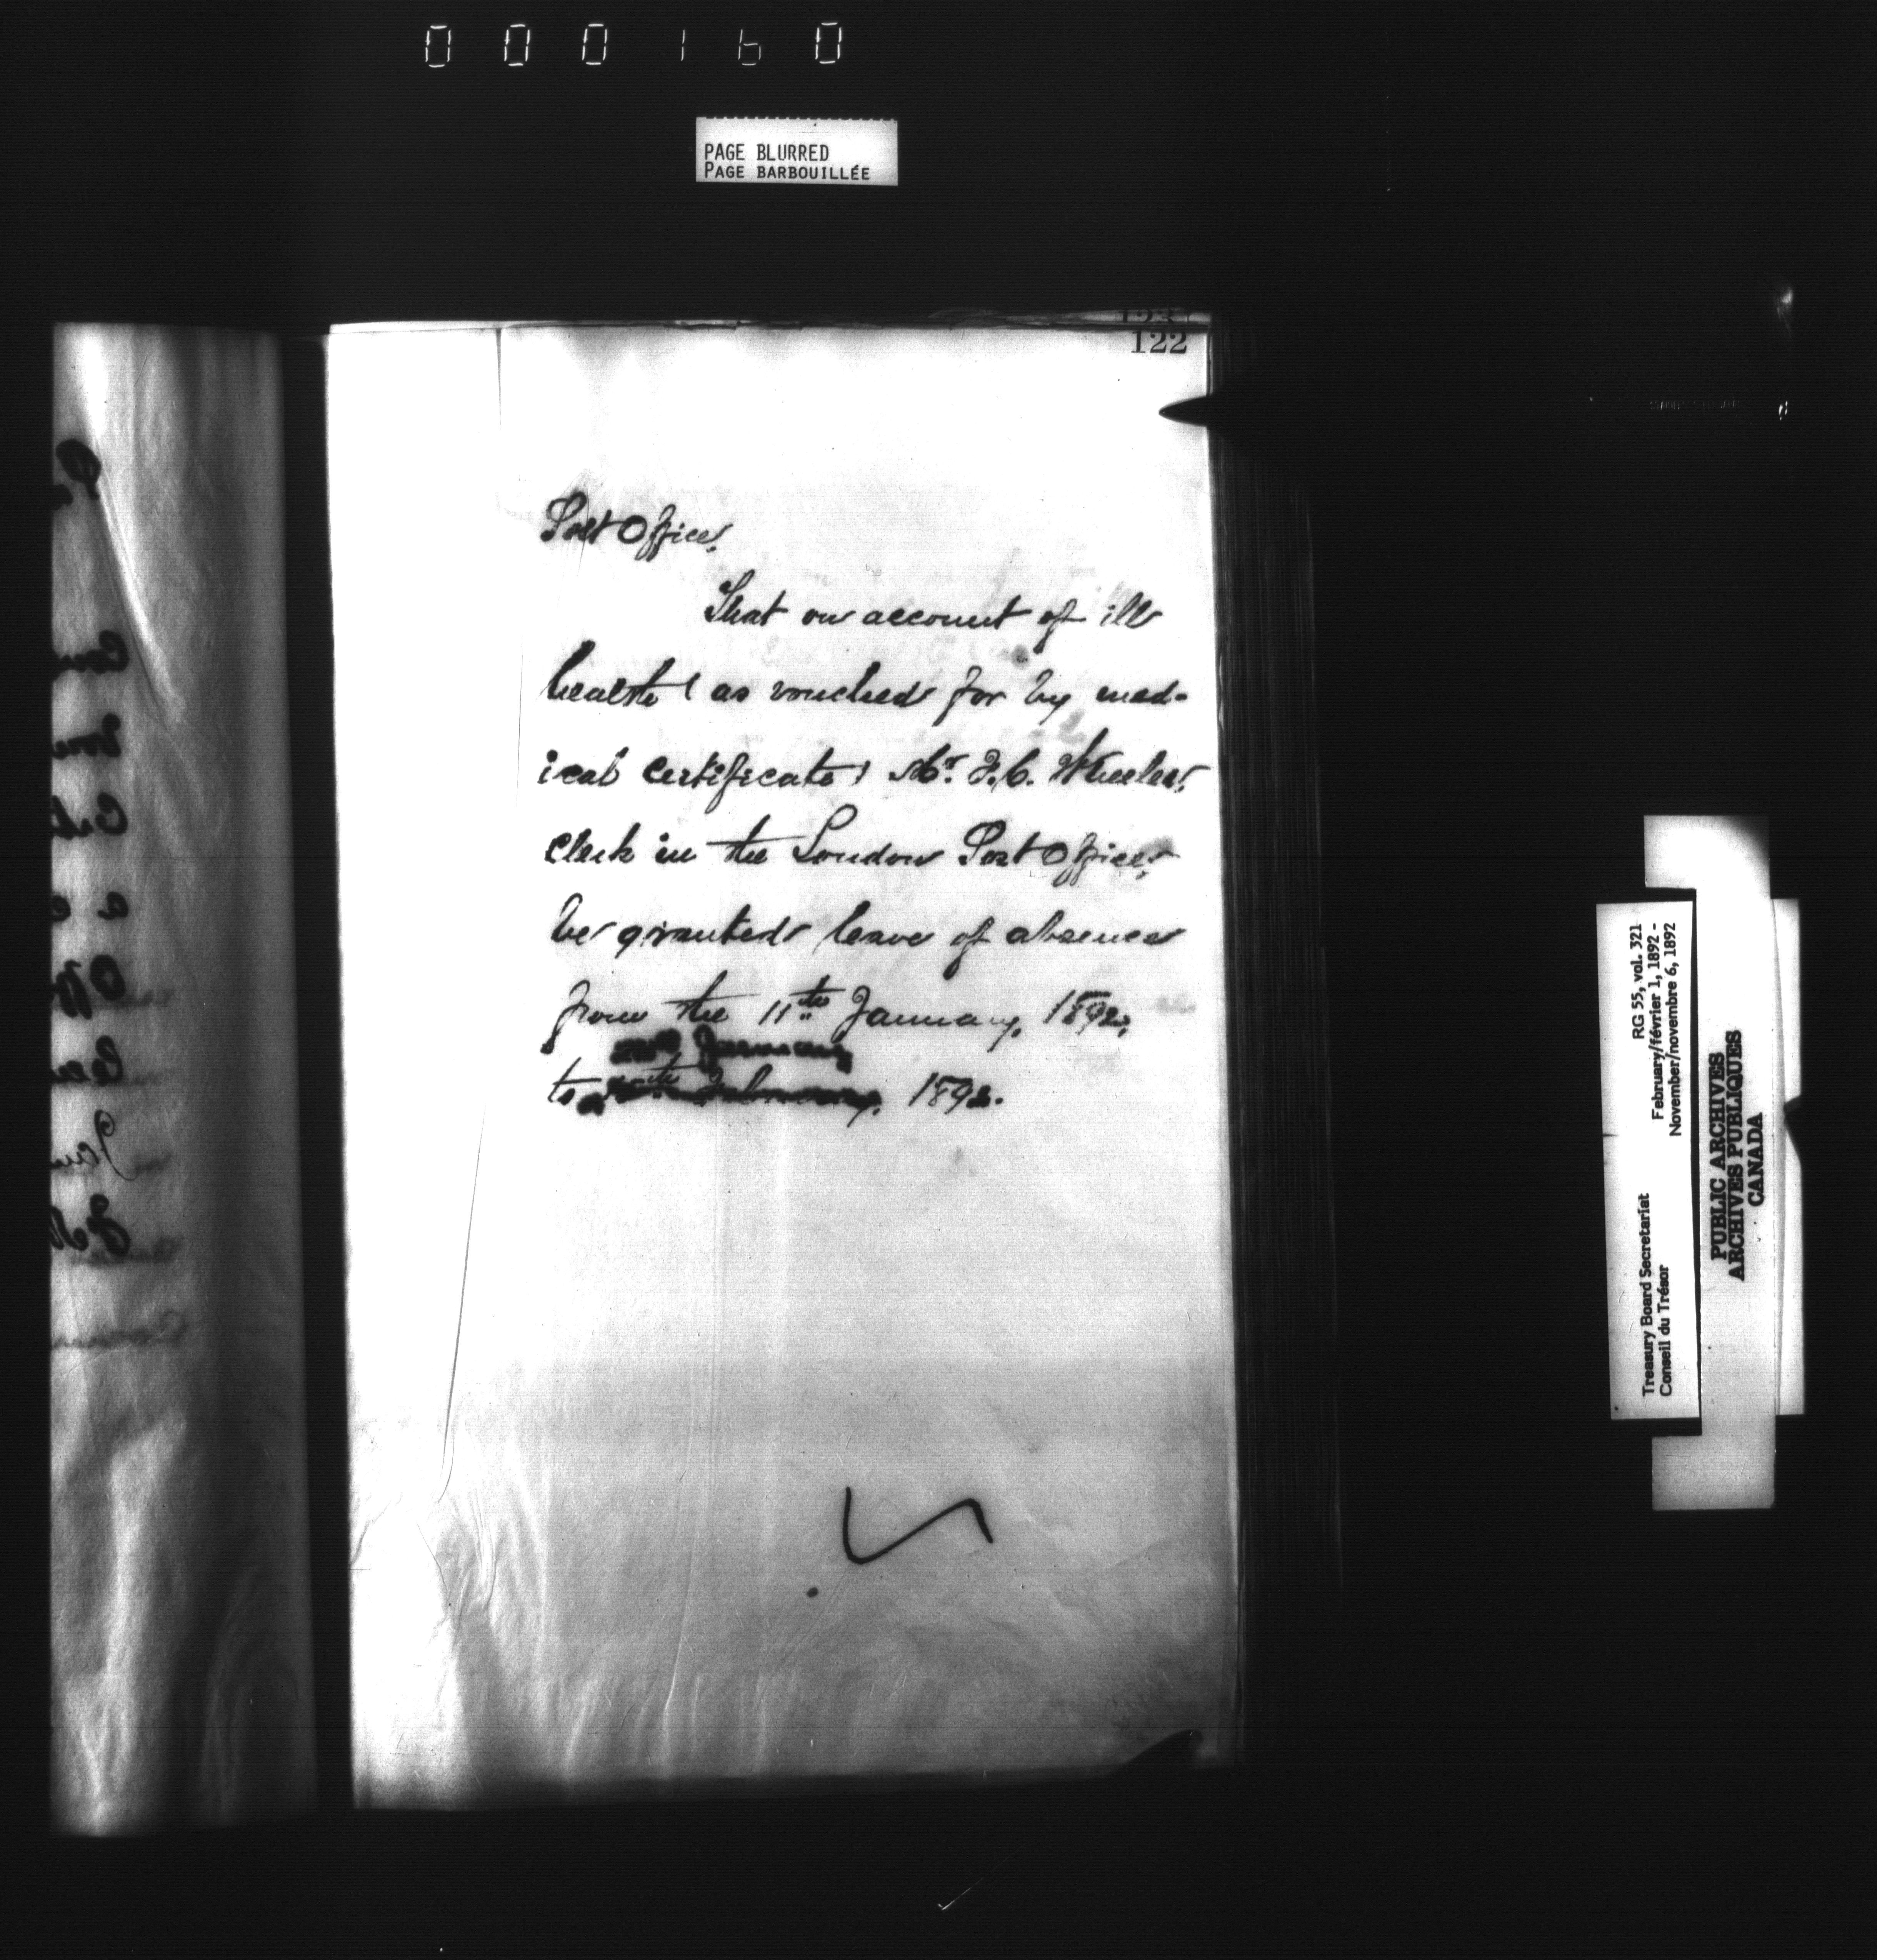 000160
PAGE BLURRED
PAGE BARBOUILLÉE
123
122
Post Office.
That on account of ill
health (as vouched for by med-
ical certificate) Mr. F.C. Wheeler,
Clerk in the London Post Office,
be granted leave of absence
from the 11th January, 1892,
January
to February, 1892.
RG 55, vol. 321
February/février 1, 1892 -
November/novembre 6, 1892
Treasury Board Secretariat
Conseil du Trésor
PUBLIC ARCHIVES
ARCHIVES PUBLIQUES
CANADA